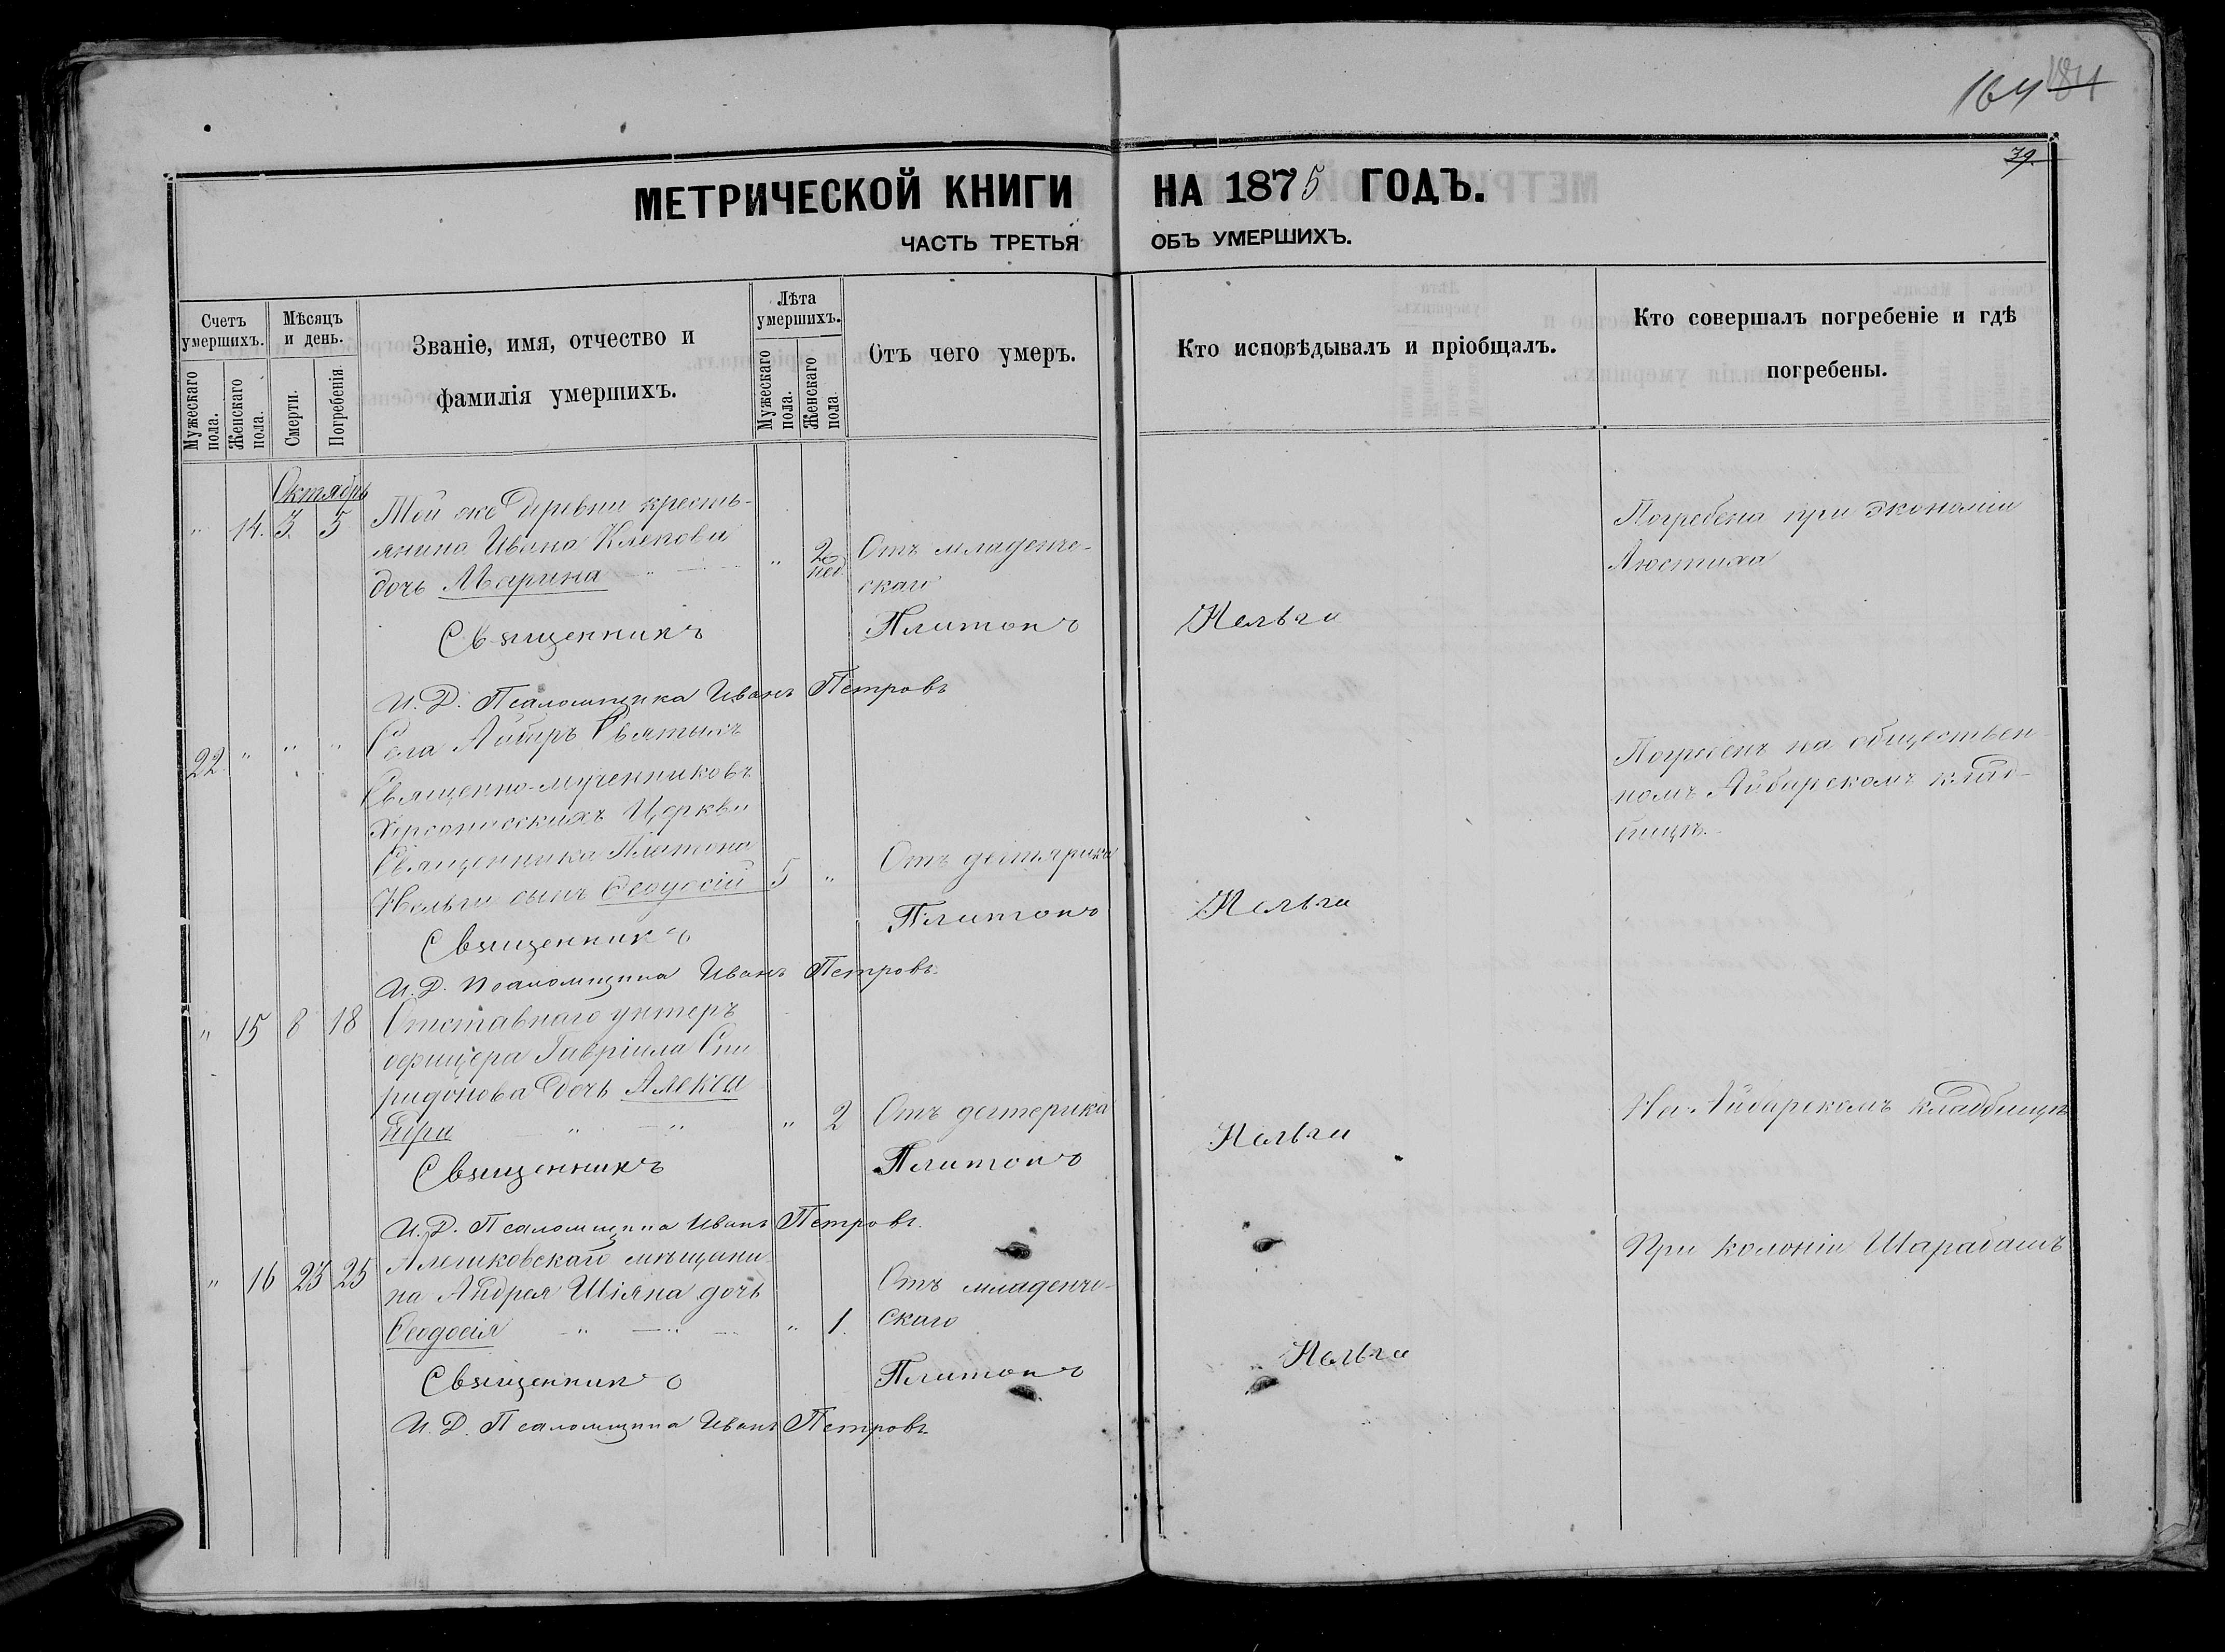 164 184
79.
МЕТРИЧЕСКОЙ КНИГИ НА 1875 ГОДЪ.
ЧАСТЬ ТРЕТЬЯ ОБЪ УМЕРШИХЪ.
Счетъ умершихъ.
Мужескаго пола.
Женскаго пола.
Мѣсяцъ и день.
Смерти.
Погребенія.
Званіе, имя, отчество и
фамилія умершихъ.
Лѣта умершихъ.
Мужескаго пола.
Женскаго пола.
Отъ чего умеръ.
Кто исповѣдывалъ и пріобщалъ.
Кто совершалъ погребеніе и гдѣ
погребены.
Октябрь
" 14. 3. 5 Той же Деревни кресть-
янина Ивана
дочь Марина " 2 нед. Отъ младенче-
скаго
Погребена при экономіи
Люстиха
Священникъ Платонъ
И. Д. Псаломщика Иванъ Петровъ
22. " " " Села Айбаръ Святыхъ
Священно-мучениковъ
Херсонисскихъ Церкви
Священника Платона
сынъ Ѳеодосій 5 " Отъ
Погребенъ на обществен-
номъ Айбарскомъ клад-
бищѣ.
Священникъ Платонъ
И. Д. Псаломщика Иванъ Петровъ.
" 15 8 18 Отставнаго унтеръ
офицера Гавріила Спи
ридонова дочь Алекса
" 2 Отъ
На Айбарскомъ кладбищѣ
Священникъ Платонъ
И. Д. Псаломщика Иванъ Петровъ.
" 16 23 25 Алешковскаго мѣщани-
на Андрея Шіяна дочь
Ѳеодосія " 1. Отъ младенче-
скаго
При колоніи Шарабашъ
Священникъ Платонъ
И. Д. Псаломщика Иванъ Петровъ.